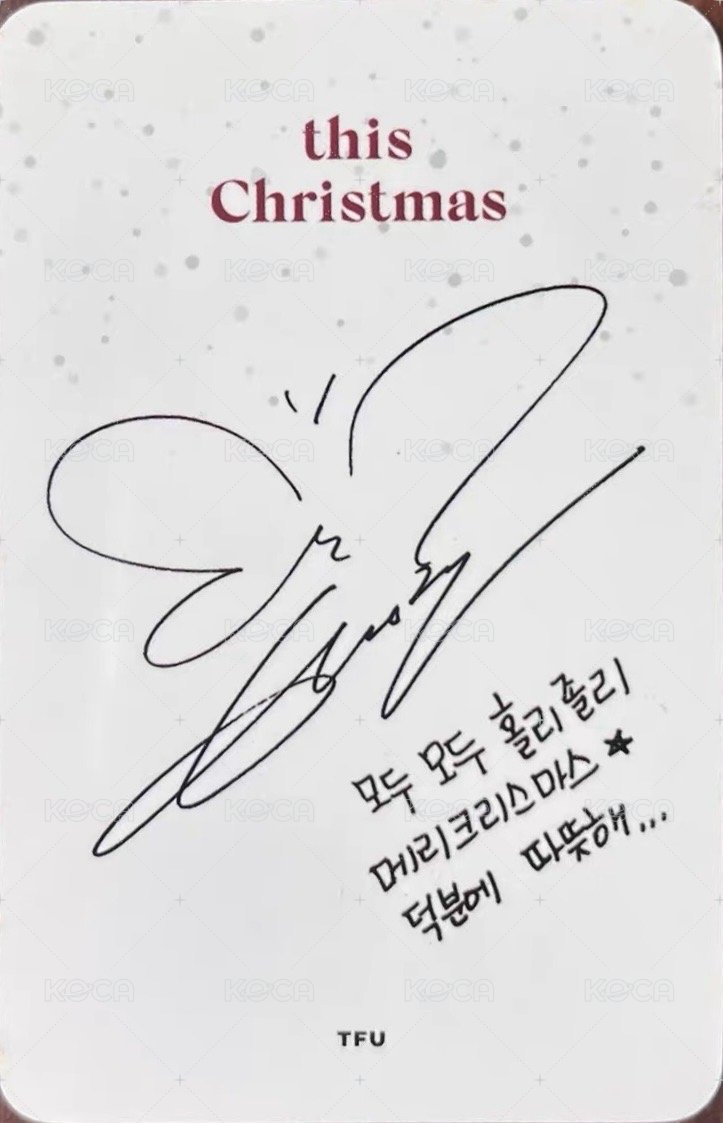 this
Christmas
모두 모두 홀리 졸리
메리크리스마스 ★
덕분에 따뜻해...
TFU